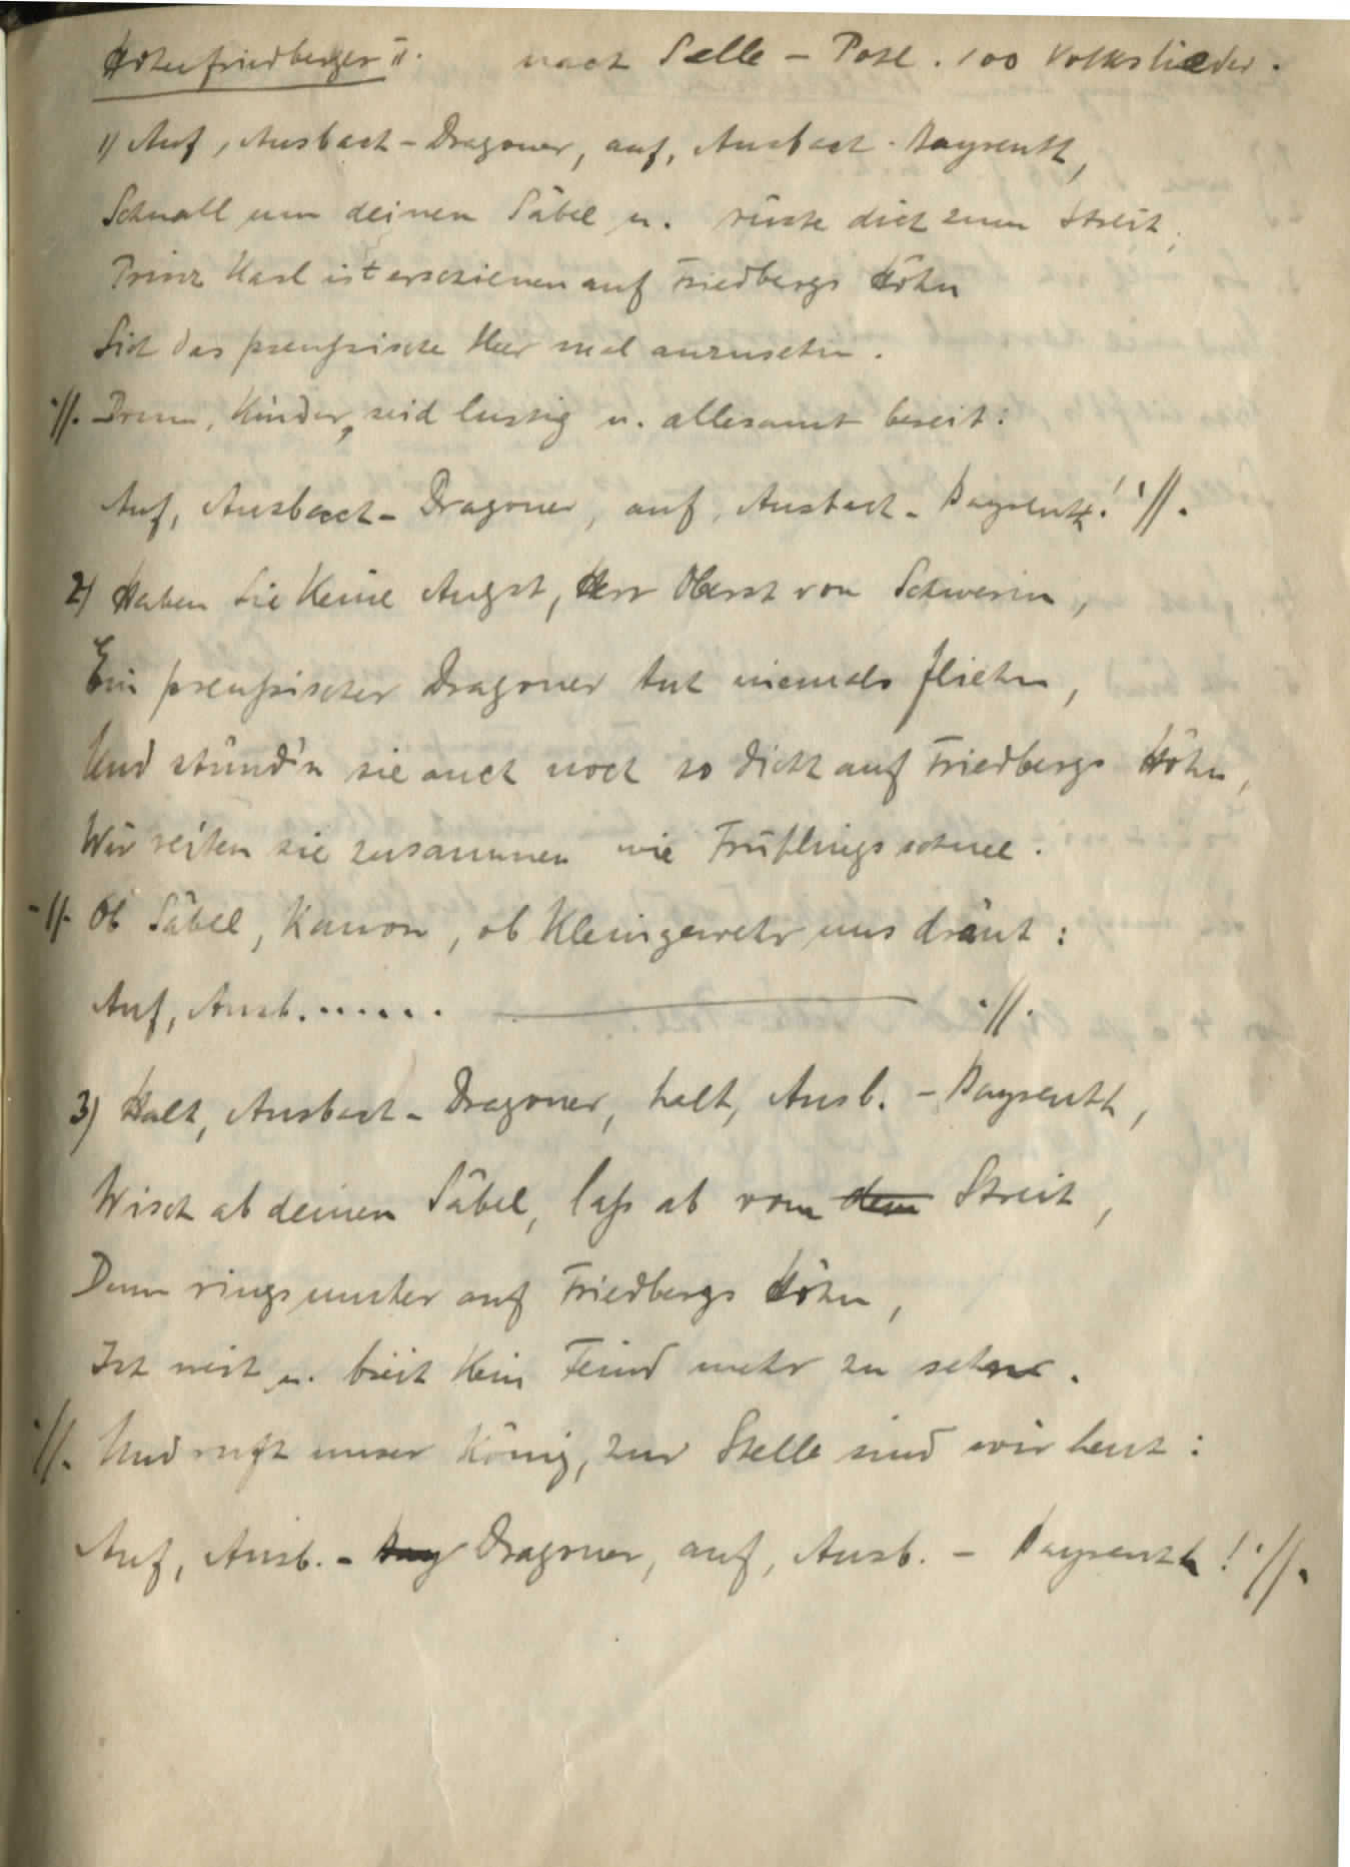 Hohenfriedberger II. nach Selle - Pohl. 100 Volkslieder.
1) Auf, Ansbach-Dragoner, auf, Ansbach-Bayreuth,
Schnall um deinen Säbel u. rüste dich zum Streit,
Prinz Karl ist erschienen auf Friedbergs Höhn
Sich das preußische Heer mal anzusehn.
·//. Drum, Kinder, seid lustig u. allesamt bereit:
Auf, Ansbach-Dragoner, auf, Ansbach-Bayreuth! ·//.
2) Haben Sie keine Angst, Herr Oberst von Schwerin,
Ein preußischer Dragoner tut niemals fliehn,
Und stünd'n sie auch noch so dicht auf Friedbergs Höhn,
Wir reiten sie zusammen wie Frühlingsschnee.
·//· Ob Säbel, Kanon, ob Kleingewehr uns dräut:
Auf, Ansb. ...... ——— ·//.
3) Halt, Ansbach-Dragoner, halt, Ansb. - Bayreuth,
Wisch ab deinen Säbel, laß ab vom dem Streit,
Denn ringsumher auf Friedbergs Höhn,
Ist weit u. breit kein Feind mehr zu sehn.
·//. Und ruft unser König, zur Stelle sind wir heut:
Auf, Ansb. - Bay Dragoner, auf, Ansb. - Bayreuth! ·//.